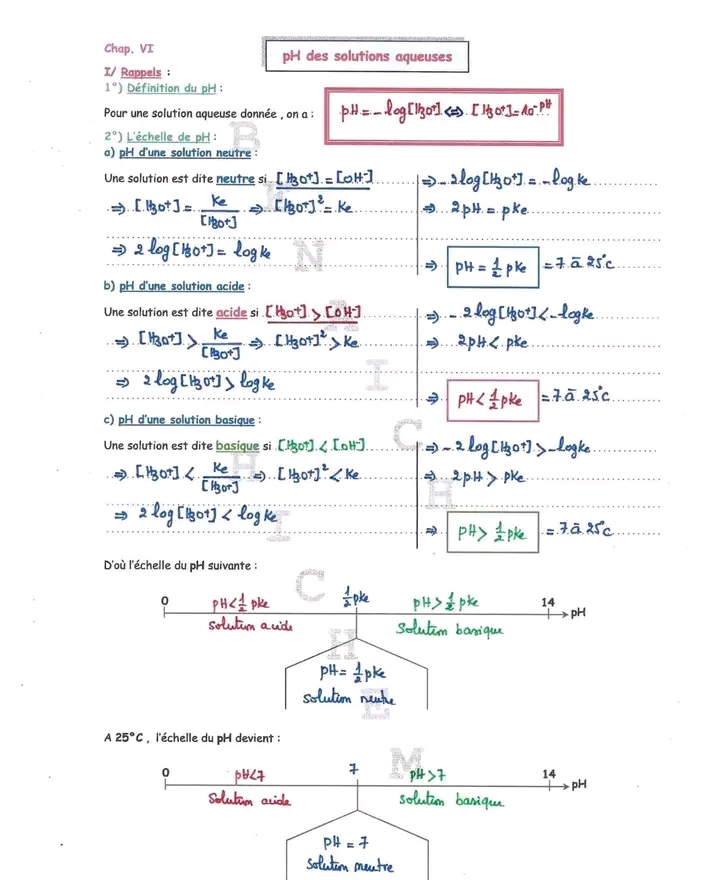 Chap. VI
pH des solutions aqueuses
I/ Rappels :
1°) Définition du pH :
Pour une solution aqueuse donnée , on a : pH = - log [H3O+] <=> [H3O+] = 10^-pH
2°) L'échelle de pH :
a) pH d'une solution neutre :
Une solution est dite neutre si [H3O+] = [OH-]
=> [H3O+] = Ke / [H3O+] => [H3O+]² = Ke
=> 2 log [H3O+] = log Ke
=> - 2 log [H3O+] = - log Ke
=> 2pH = pKe
=> pH = 1/2 pKe = 7 à 25°C
b) pH d'une solution acide :
Une solution est dite acide si [H3O+] > [OH-]
=> [H3O+] > Ke / [H3O+] => [H3O+]² > Ke
=> 2 log [H3O+] > log Ke
=> - 2 log [H3O+] < - log Ke
=> 2pH < pKe
=> pH < 1/2 pKe = 7 à 25°C
c) pH d'une solution basique :
Une solution est dite basique si [H3O+] < [OH-]
=> [H3O+] < Ke / [H3O+] => [H3O+]² < Ke
=> 2 log [H3O+] < log Ke
=> - 2 log [H3O+] > - log Ke
=> 2pH > pKe
=> pH > 1/2 pKe = 7 à 25°C
D'où l'échelle du pH suivante :
0 pH < 1/2 pKe 1/2 pKe pH > 1/2 pKe 14 pH
Solution acide Solution basique
pH = 1/2 pKe
Solution neutre
A 25°C , l'échelle du pH devient :
0 pH < 7 7 pH > 7 14 pH
Solution acide solution basique
pH = 7
Solution neutre